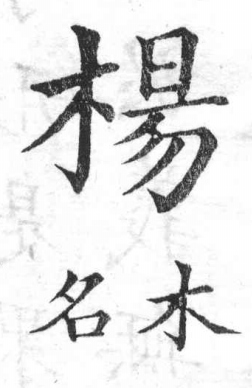 楊
木名